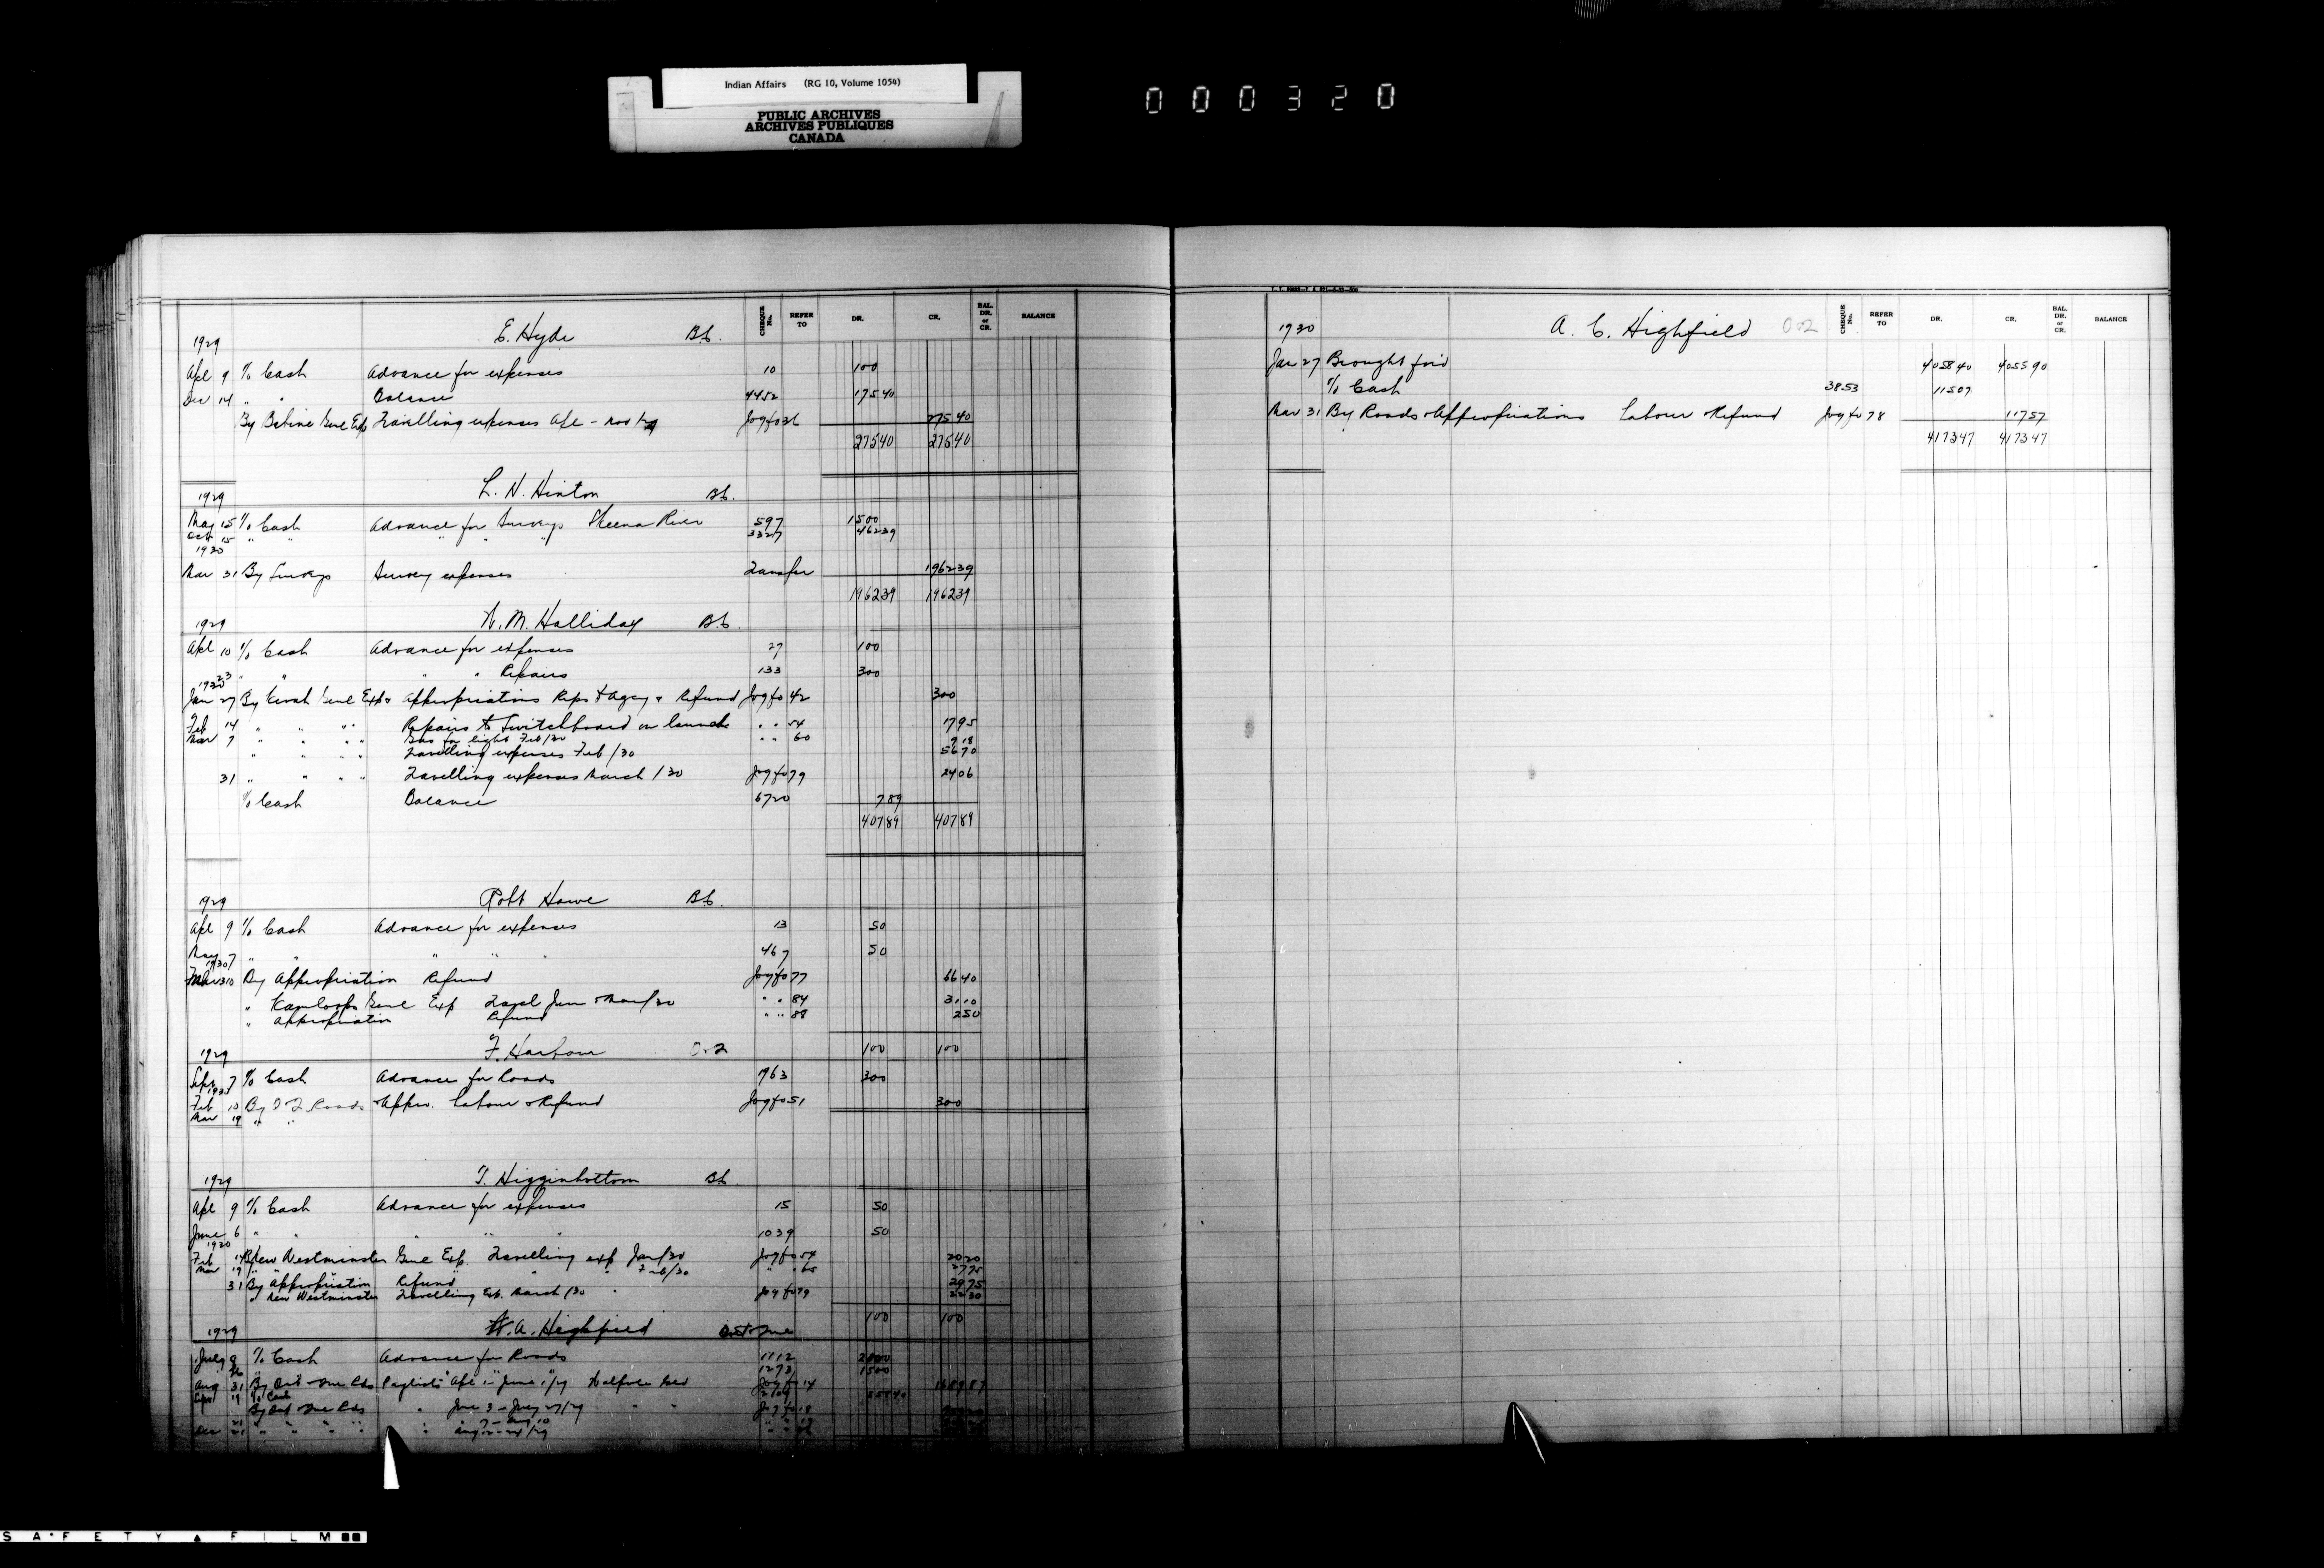 Indian Affairs (RG 10, Volume 1054)
PUBLIC ARCHIVES
ARCHIVES PUBLIQUES
CANADA
000320
CHEQUE No. REFER TO DR. CR. BAL. DR. or CR. BALANCE
1929 E. Hyde B.C.
Apl 9 % Cash Advance for expenses 10 100
Dec 14 " " Balance 4452 17540
By Babine Genl Exp Travelling expenses Apl - Nov Jog fo 36 27540
27540 27540
1929 L. N. Hinton B.C.
May 15 % Cash Advance for Surveys Skeena River 597 1500
Oct 15 " " " " " 3327 46239
1930
Mar 31 By Surveys Survey expenses Transfer 196239
196239 196239
1929 W. M. Halliday B.C.
Apl 10 % Cash Advance for expenses 27 100
23 " " " " Repairs 133 300
1930
Jan 27 By Genl Exp & Appropriations Reps & Agcy & Refund Jog fo 42 300
Feb 14 " " " " Repairs to Switchboard on launch " " 54 1795
Mar 7 " " " " Gas for light Feb/30 " " 60 918
" " " " Travelling expenses Feb/30 5670
31 " " " " Travelling expenses March/30 Jog fo 79 2406
% Cash Balance 6720 789
40789 40789
1929 Robt Howe B.C.
Apl 9 % Cash Advance for expenses 13 50
May 7 " " " " " 467 50
1930
Mar 31 By Appropriation Refund Jog fo 77 6640
" Kamloops Genl Exp Travel Jan & Mar/30 " " 84 3110
" Appropriation Refund " " 88 250
100 100
1929 F. Harbour O & 2
Sept 7 % Cash Advance for Roads 763 300
1930
Feb 10 By Roads & Appro. Labour & Refund Jog fo 51 300
Mar 19 " "
1929 T. Higginbottom B.C.
Apl 9 % Cash Advance for expenses 15 50
June 6 " " " " " 1039 50
1930
Feb 14 By New Westminster Genl Exp. Travelling exp Jan/30 Jog fo 54 2020
Mar 19 " " " " " Feb/30 " " 65 2775
31 By Appropriation Refund 2975
" New Westminster Travelling Exp. March/30 Jog fo 79 2230
100 100
1929 A. Highfield
July 9 % Cash Advance for Roads 1112 2000
1273 1500
Aug 31 By Paylists Apl June Jog fo 14
Sept 19 % Cash
By June 3 - July 27/29 Jog fo 18
" 7 - Aug 10
Dec 21 " " " " Aug
CHEQUE No. REFER TO DR. CR. BAL. DR. or CR. BALANCE
1930 A. C. Highfield O & 2
Jan 27 Brought ford 405840 405590
% Cash 3853 11507
Mar 31 By Roads & Appropriations Labour & Refund Jog fo 78 11757
417347 417347
SAFETY FILM